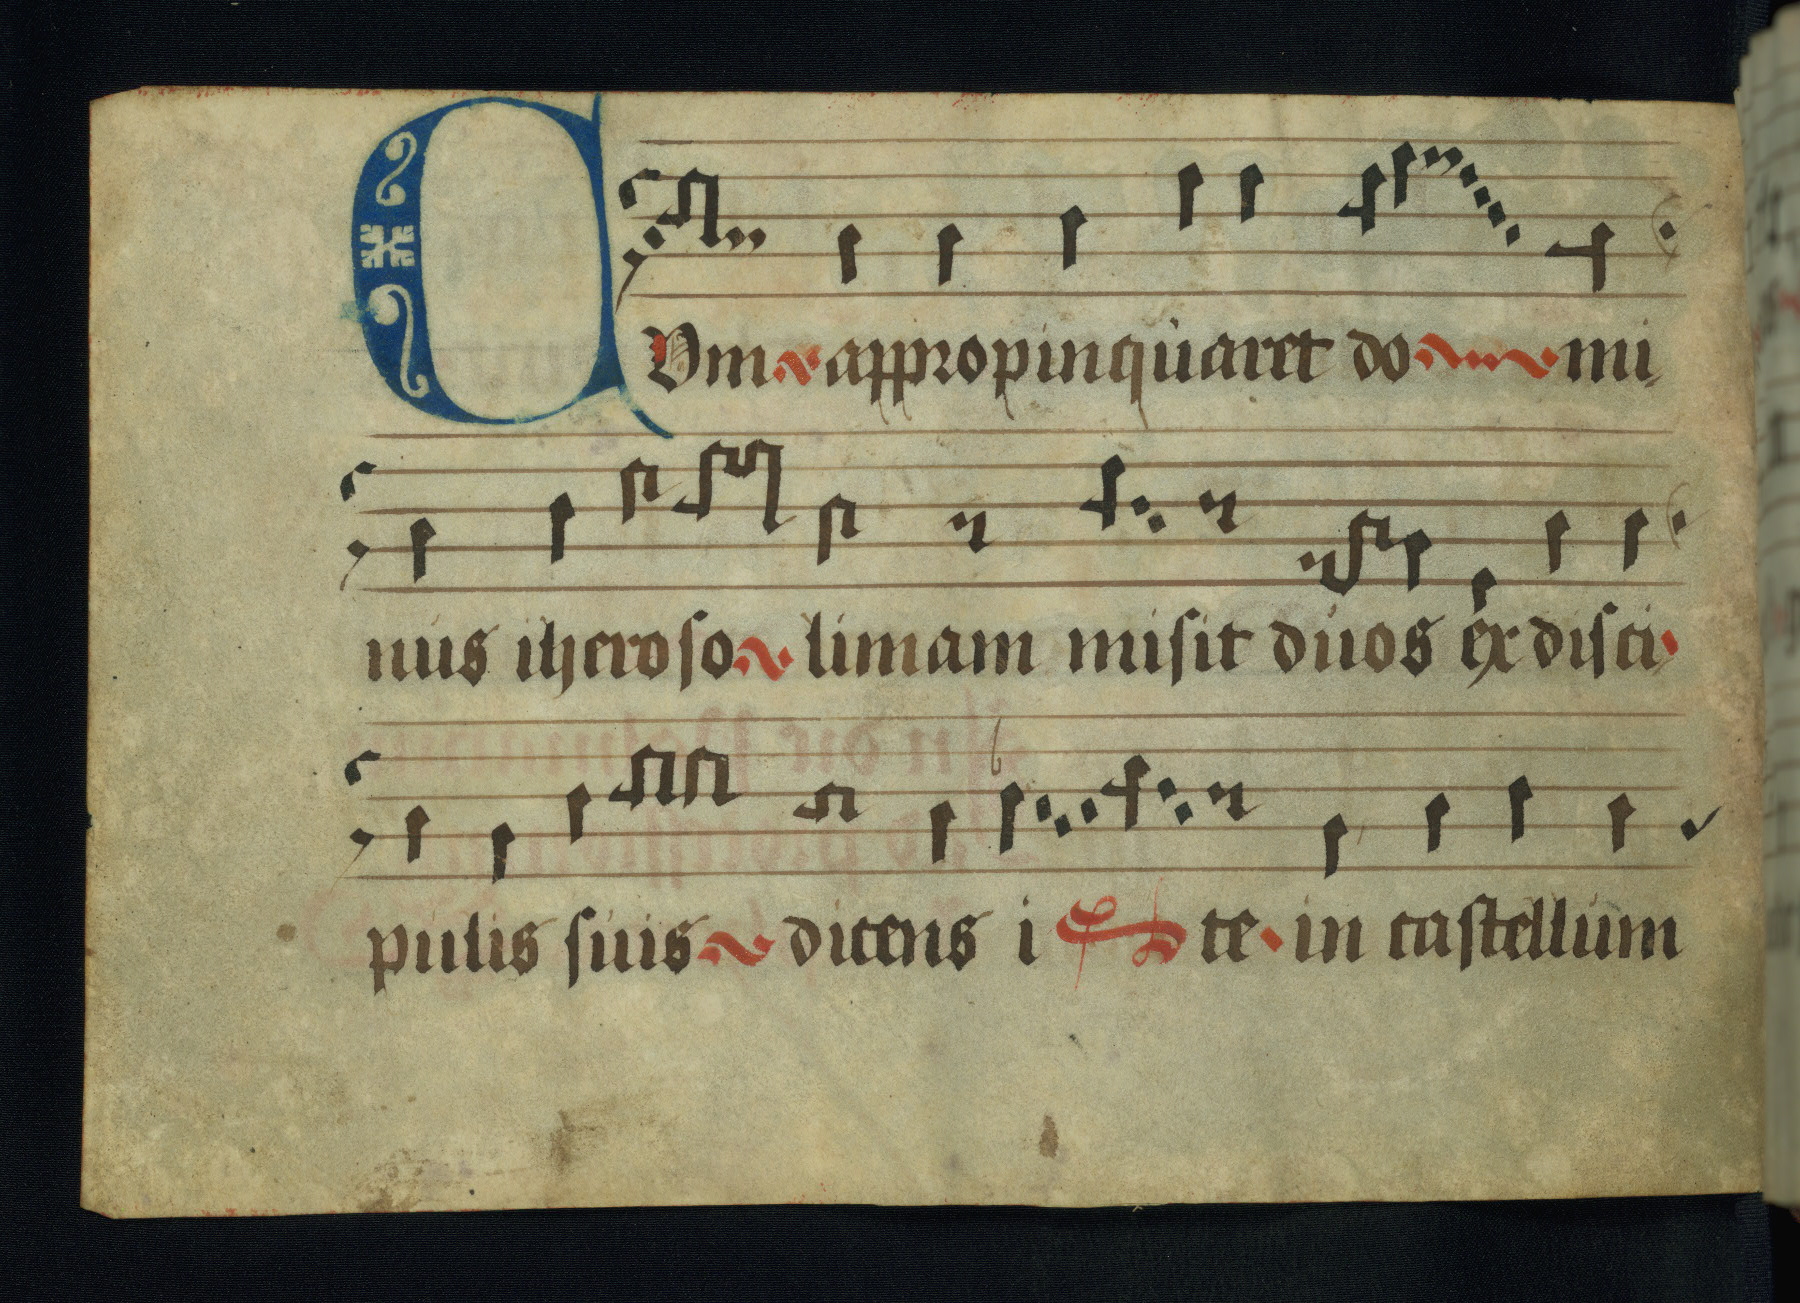 CVm appropinquaret do mi
nus iheroso limam misit duos ex disci
pulis suis dicens i te in castellum